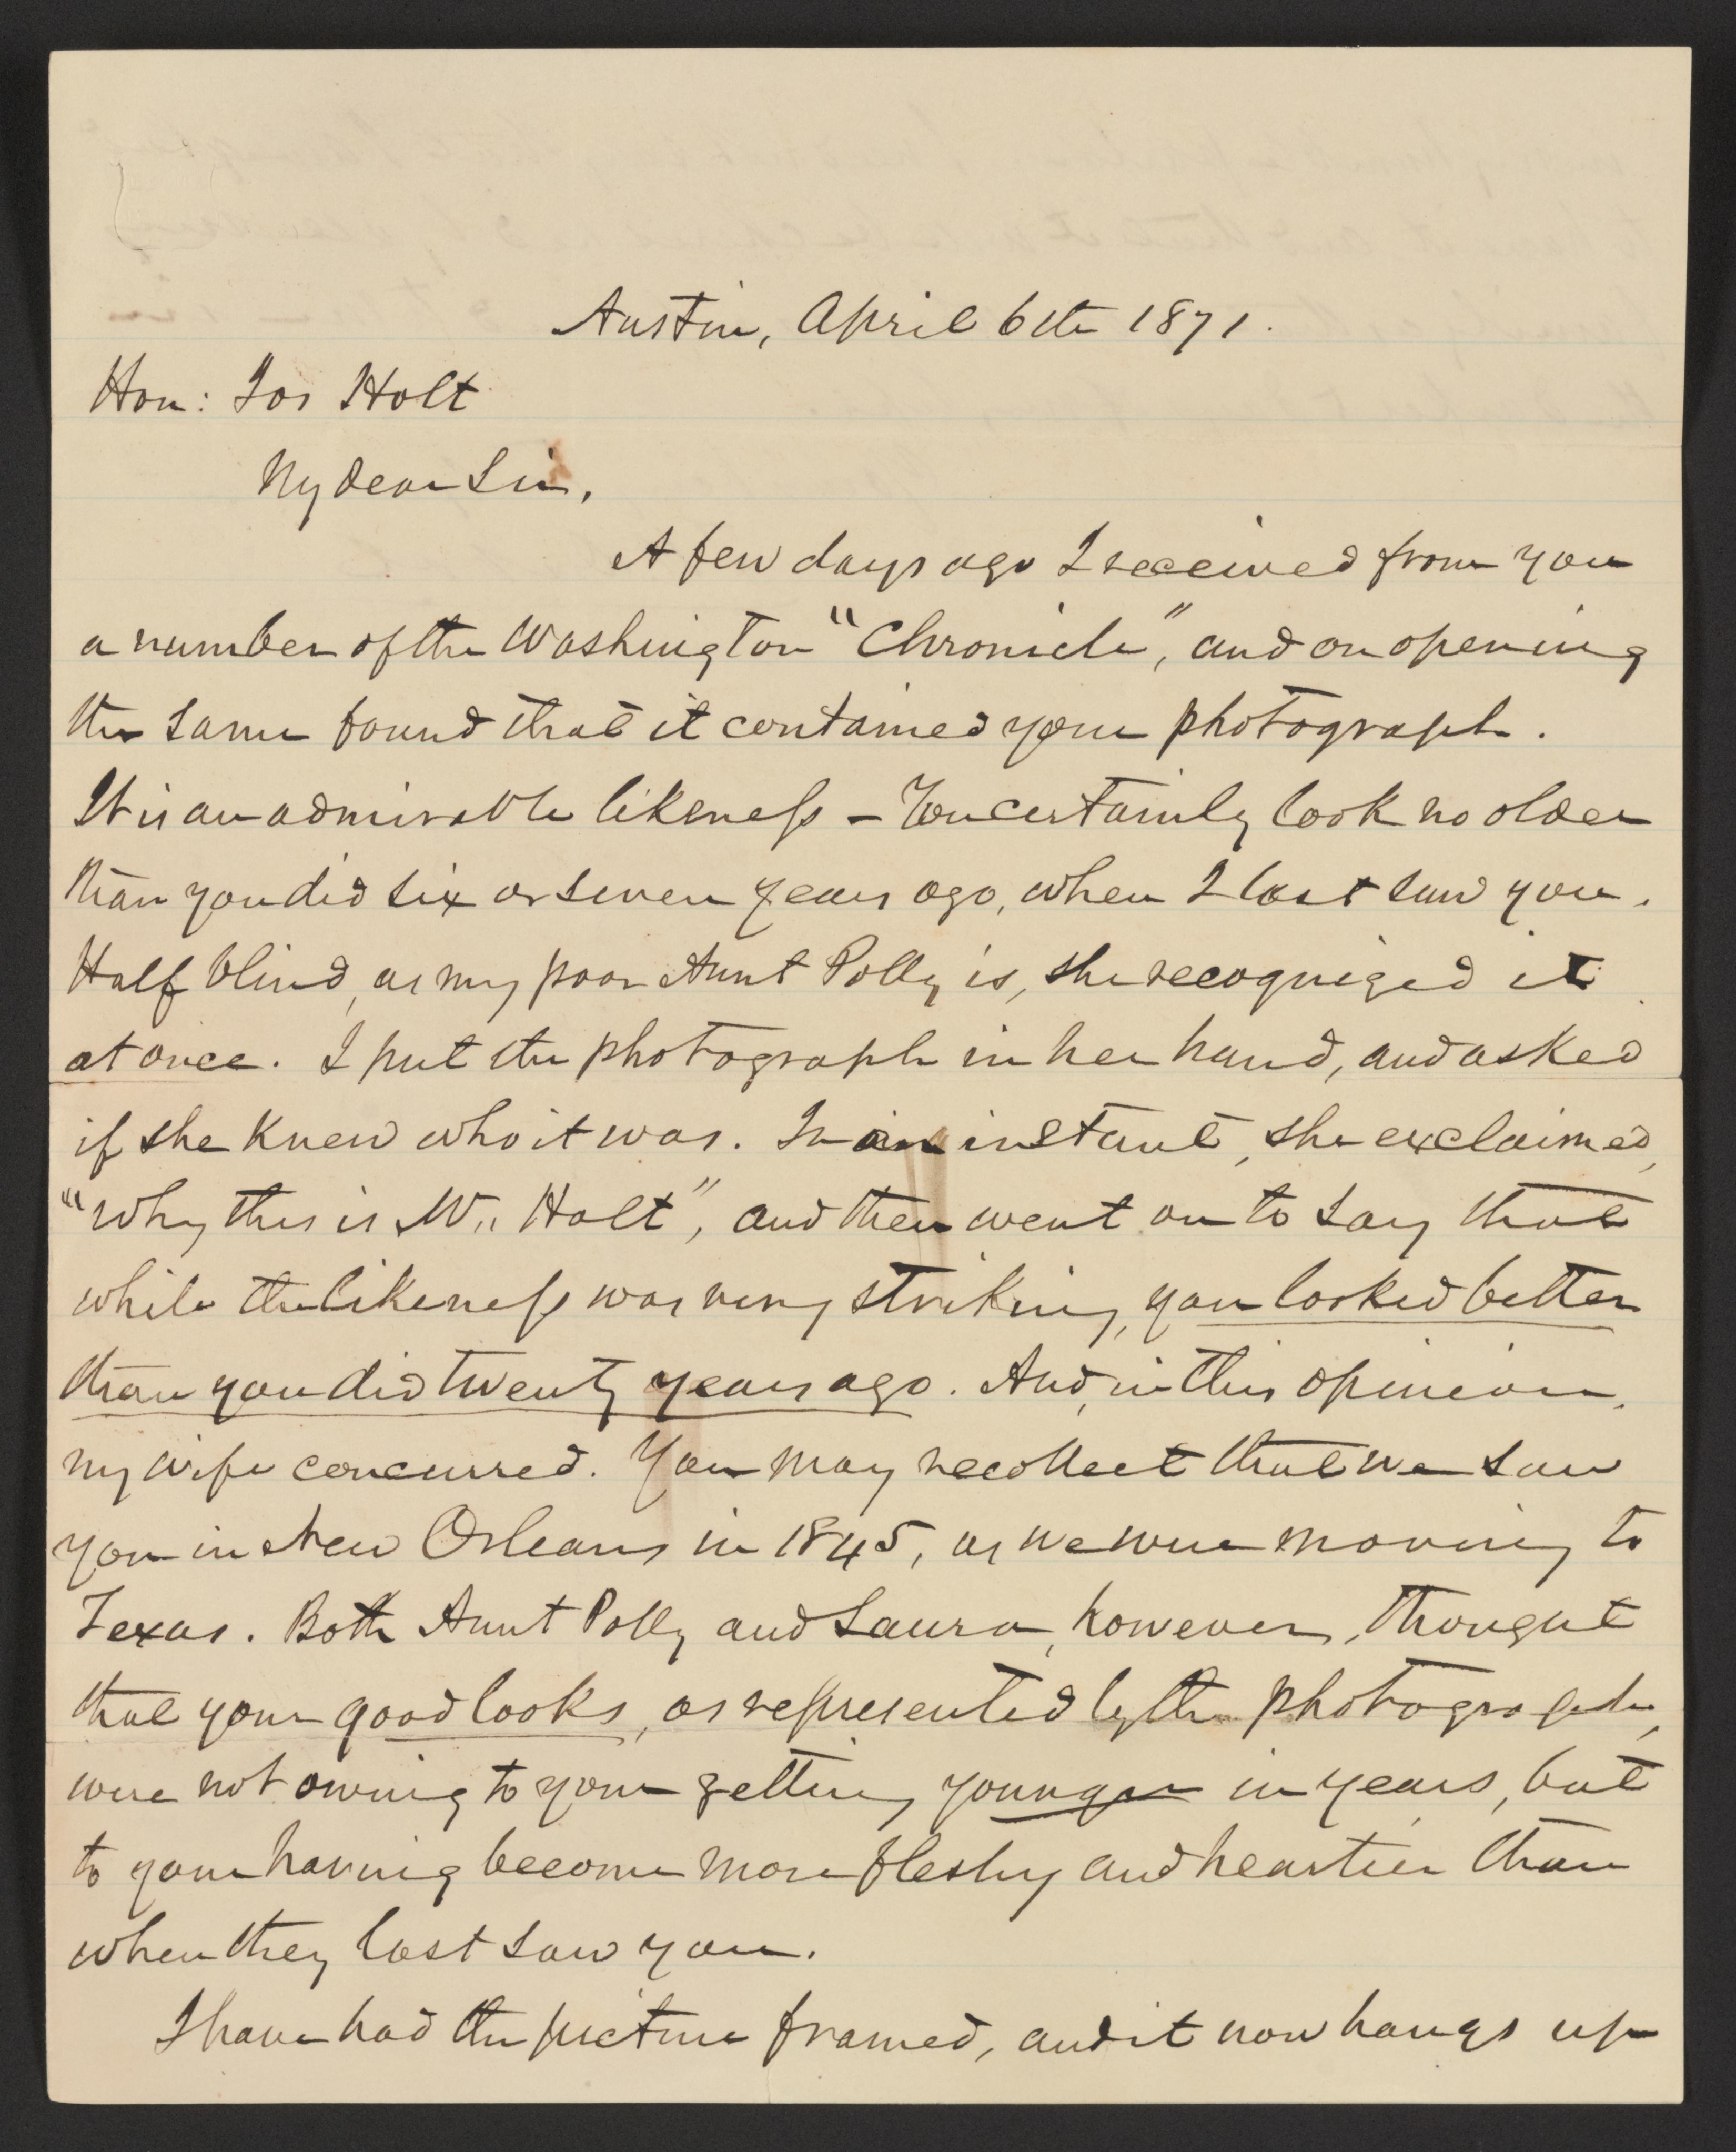 Austin, April 6th 1871.
Hon: Jos Holt
My dear Sir,
A few days ago I received from you
a number of the Washington "Chronicle", and on opening
the same found that it contained your photograph.
It is an admirable likeness – You certainly look no older
than you did six or seven years ago, when I last saw you.
Half blind, as my poor Aunt Polly is, she recognized it
at once. I put the photograph in her hand, and asked
if she knew who it was. In an instant, she exclaimed,
"Why this is Mr. Holt", and then went on to say that
while the likeness was very striking, you looked better
than you did twenty years ago. And, in this opinion,
my wife concurred. You may recollect that we saw
you in New Orleans in 1845, as we were moving to
Texas. Both Aunt Polly and Laura, however, thought
that your good looks, as represented by the photograph,
were not owing to your getting younger in years, but
to your having become more fleshy and heartier than
when they last saw you.
I have had the picture framed, and it now hangs up